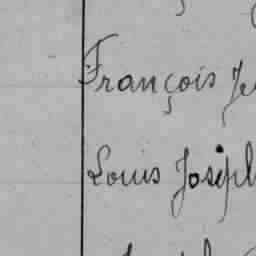 François
Louis Joseph